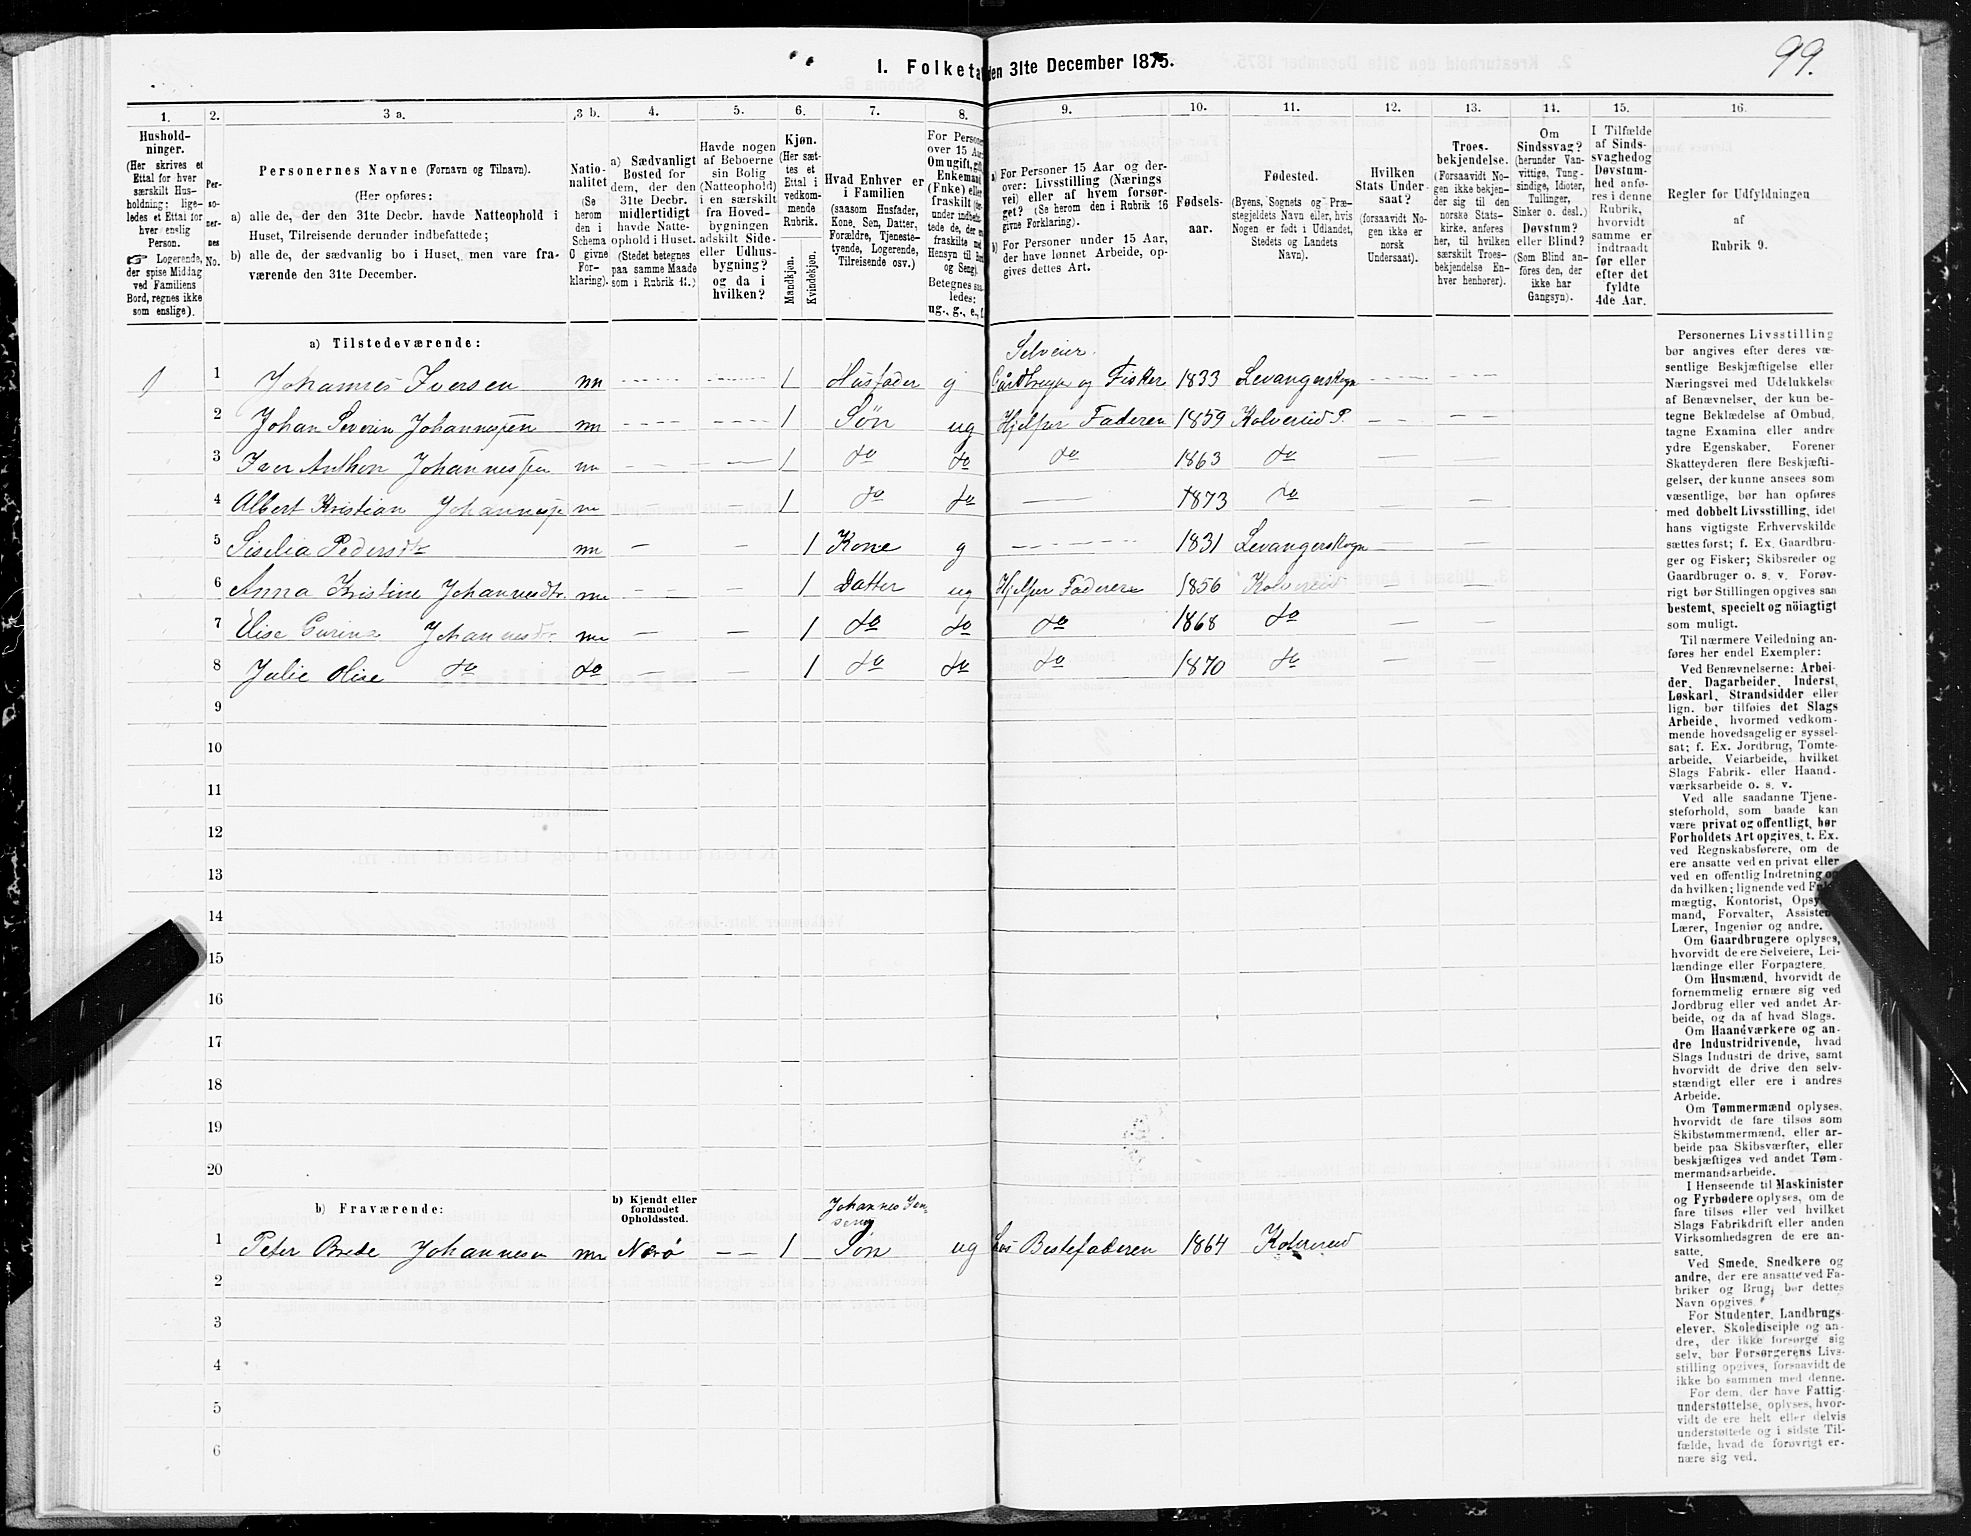 99.
I. Folketa den 31te December 1875.
1. 2. 3 a. 3 b. 4. 5. 6. 7. 8. 9. 10. 11. 12. 13. 14. 15. 16.
Hushold-
ninger.
(Her skrives et
Ettal for hver
særskilt Hus-
holdning; lige-
ledes et Ettal for
hver enslig
Person.
☞ Logerende,
der spise Middag
ved Familiens
Bord, regnes ikke
som enslige).
Per-
so-
ner-
nes
No.
Personernes Navne (Fornavn og Tilnavn).
(Her opføres:
a) alle de, der den 31te Decbr. havde Natteophold i
Huset, Tilreisende derunder indbefattede;
b) alle de, der sædvanlig bo i Huset, men vare fra-
værende den 31te December.
Natio-
nalitet
(Se
herom
den i
Schema
C givne
For-
klaring).
a) Sædvanligt
Bosted for
dem, der den
31te Decbr.
midlertidigt
havde Natte-
ophold i Huset.
(Stedet betegnes
paa samme Maade
som i Rubrik 11.)
Havde nogen
af Beboerne
sin Bolig
(Natteophold)
i en særskilt
fra Hoved-
bygningen
adskilt Side-
eller Udhus-
bygning?
og da i
hvilken?
Kjøn.
(Her sæt-
tes et
Ettal i
vedkom-
mende
Rubrik.
Mandkjøn.
Kvindekjøn.
Hvad Enhver er
i Familien
(saasom Husfader,
Kone, Søn, Datter,
Forældre, Tjeneste-
tyende, Logerende,
Tilreisende osv.)
For Persone
over 15 Aa
Om ugift, gif
Enkemand
(Enke) elle
fraskilt
under indbefat-
tede de, de
fraskilte med
Hensyn til Bo
og Seng).
Betegnes saa-
ledes:
ug., g., e., f
a) For Personer 15 Aar og der-
over: Livsstilling (Nærings
vei) eller af hvem forsør-
get? (Se herom den i Rubrik 16
givne Forklaring).
b) For Personer under 15 Aar,
der have lønnet Arbeide, op-
gives dettes Art.
Fødsels-
aar.
Fødested.
(Byens, Sognets og Præ-
stegjeldets Navn eller, hvis
Nogen er født i Udlandet,
Stedets og Landets
Navn).
Hvilken
Stats Under-
saat?
(forsaavidt No-
gen ikke er
norsk
Undersaat).
Troes-
bekjendelse.
(Forsaavidt No-
gen ikke bekjen-
der sig til den
norske Stats-
kirke, anføres
her, til hvilken
særskilt Troes-
bekjendelse En-
hver henhører).
Om
Sindssvag?
(herunder Van-
vittige, Tung-
sindige, Idioter,
Tullinger,
Sinker o. desl.)
Døvstum?
eller Blind?
(Som Blind an-
føres den, der
ikke har
Gangsyn).
I Tilfælde
af Sinds-
svaghed og
Døvstum-
hed anfø-
res i denne
Rubrik,
hvorvidt
samme er
indtraadt
før eller
efter det
fyldte
4de Aar.
Regler før Udfyldningen
af
Rubrik 9.
a) Tilstedeværende:
Selveier.
1 1 Johannes Iversen nn 1 Husfader g Gårdbruger og Fisker 1833 Levangerskogn
2 Johan Severin Johannessen nn 1 Søn ug Hjelper Faderen 1859 Kolvereid P.
3 Iver Anthon Johannessen nn 1 do do do 1863 do
4 Albert Kristian Johannes nn 1 do do 1873 do
5 Siselia Pedersdtr nn 1 Kone g 1831 Levangerskogn
6 Anna Kristine Johannesdtr. nn 1 Datter ug Hjelper Faderen 1856 Kolvereid
7 Elise Gurine Johannesdtr nn 1 do do do 1868 do
8 Julie Olise do do 1 do do do 1870 do
9
10
11
12
13
14
15
16
17
18
19
20
b) Fraværende:
b) Kjendt eller
formodet
Opholdssted.
Johannes
1 Peter Brede Johannesen nn Nærø 1 Søn ug Hos Bestefaderen 1864 Kolvereid
2
3
4
5
6
Personernes Livsstilling
bør angives efter deres væ-
sentlige Beskjæftigelse eller
Næringsvei med Udelukkelse
af Benævnelser, der kun be-
tegne Beklædelse af Ombud,
tagne Examina eller andre
ydre Egenskaber. Forener
Skatteyderen flere Beskjæfti-
gelser, der kunne ansees som
væsentlige, bør han opføres
med dobbelt Livsstilling, idet
hans vigtigste Erhvervskilde
sættes først; f. Ex. Gaardbru-
ger og Fisker; Skibsreder og
Gaardbruger o. s. v. Forøv-
rigt bør Stillingen opgives saa
bestemt, specielt og nöiagtigt
som muligt.
Til nærmere Veiledning an-
føres her endel Exempler:
Ved Benævnelserne: Arbei-
der, Dagarbeider, Inderst,
Løskarl, Strandsidder eller
lign. bør tilføies det Slags
Arbeide, hvormed vedkom-
mende hovedsagelig er syssel-
sat; f. Ex. Jordbrug, Tomte-
arbeide, Veiarbeide, hvilket
Slags Fabrik- eller Haand-
værksarbeide o. s. v.
Ved alle saadanne Tjene-
steforhold, som baade kan
være privat og offentligt, bør
Forholdets Art opgives, t. Ex.
ved Regnskabsførere, om de
ere ansatte ved en privat eller
ved en offentlig Indretning og
da hvilken; lignende ved
mægtig, Kontorist, Opsy
mand, Forvalter, Assisten
Lærer, Ingeniør og andre.
Om Gaardbrugere oplyses,
hvorvidt de ere Selveiere, Lei-
lændinge eller Forpagtere.
Om Husmænd, hvorvidt de
fornemmelig ernære sig ved
Jordbrug eller ved andet Ar-
beide, og da af hvad Slags.
Om Haandværkere og an-
dre Industridrivende, hvad
Slags Industri de drive, samt
hvorvidt de drive den selv-
stændigt eller ere i andres
Arbeide.
Om Tømmermænd oplyses,
hvorvidt de fare tilsøs som
Skibstømmermænd, eller ar-
beide paa Skibsværfter, eller
beskjæftiges ved andet Tøm-
mermandsarbeide.
I Henseende til Maskinister
og Fyrbødere oplyses, om de
fare tilsøs eller ved hvilket
Slags Fabrikdrift eller anden
Virksomhedsgren de ere an-
satte.
Ved Smede, Snedkere og
andre, der ere ansatte ved Fa-
briker og Brug, bør dettes
Navn opgives.
For Studenter, Landbrugs-
elever, Skoledisciple og an-
dre, der ikke forsørge sig
selv, bør Forsørgerens Livs-
stilling opgives, forsaavidt de
ikke bo sammen med denne.
For dem, der have Fattig-
understøttelse, oplyses, hvor-
vidt de ere helt eller delvis
understøttede og i sidste Til-
fælde, hvad de forøvrigt er-
nære sig ved.